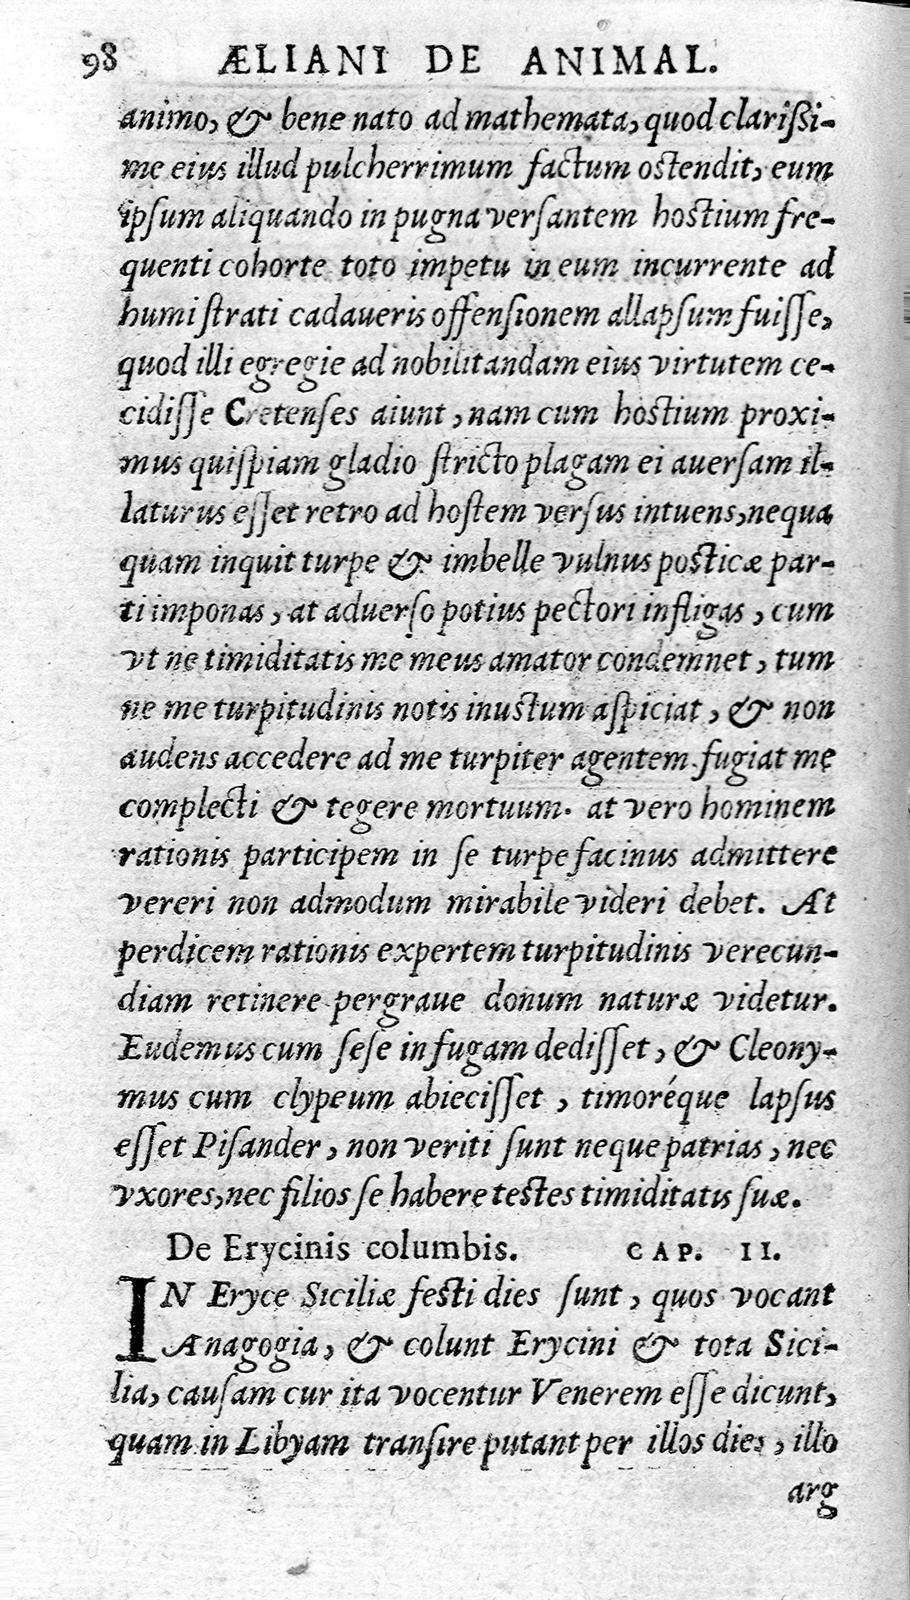 98 ÆLIANI DE ANIMAL.
animo, & bene nato ad mathemata, quod clariſsi-
me eius illud pulcherrimum factum ostendit, eum
ipſum aliquando in pugna verſantem hostium fre-
quenti cohorte toto impetu in eum incurrente ad
humi ſtrati cadaueris offenſionem allapſum fuiſſe,
quod illi egregie ad nobilitandam eius virtutem ce-
cidiſſe Cretenſes aiunt, nam cum hostium proxi-
mus quiſpiam gladio ſtricto plagam ei auerſam il-
laturus eſſet retro ad hoſtem verſus intuens, nequa
quam inquit turpe & imbelle vulnus posticæ par-
ti imponas, at aduerſo potius pectori infligas, cum
vt ne timiditatis me meus amator condemnet, tum
ne me turpitudinis notis inustum aſpiciat, & non
audens accedere ad me turpiter agentem fugiat me
complecti & tegere mortuum. at vero hominem
rationis participem in ſe turpe facinus admittere
vereri non admodum mirabile videri debet. At
perdicem rationis expertem turpitudinis verecun-
diam retinere pergraue donum naturæ videtur.
Eudemus cum ſeſe in fugam dediſſet, & Cleony-
mus cum clypeum abieciſſet, timoréque lapſus
eſſet Piſander, non veriti ſunt neque patrias, nec
vxores, nec filios ſe habere testes timiditatis ſuæ.
De Erycinis columbis. CAP. II.
IN Eryce Siciliæ festi dies ſunt, quos vocant
Anagogia, & colunt Erycini & tota Sici-
lia, cauſam cur ita vocentur Venerem eſſe dicunt,
quam in Libyam tranſire putant per illos dies, illo
arg